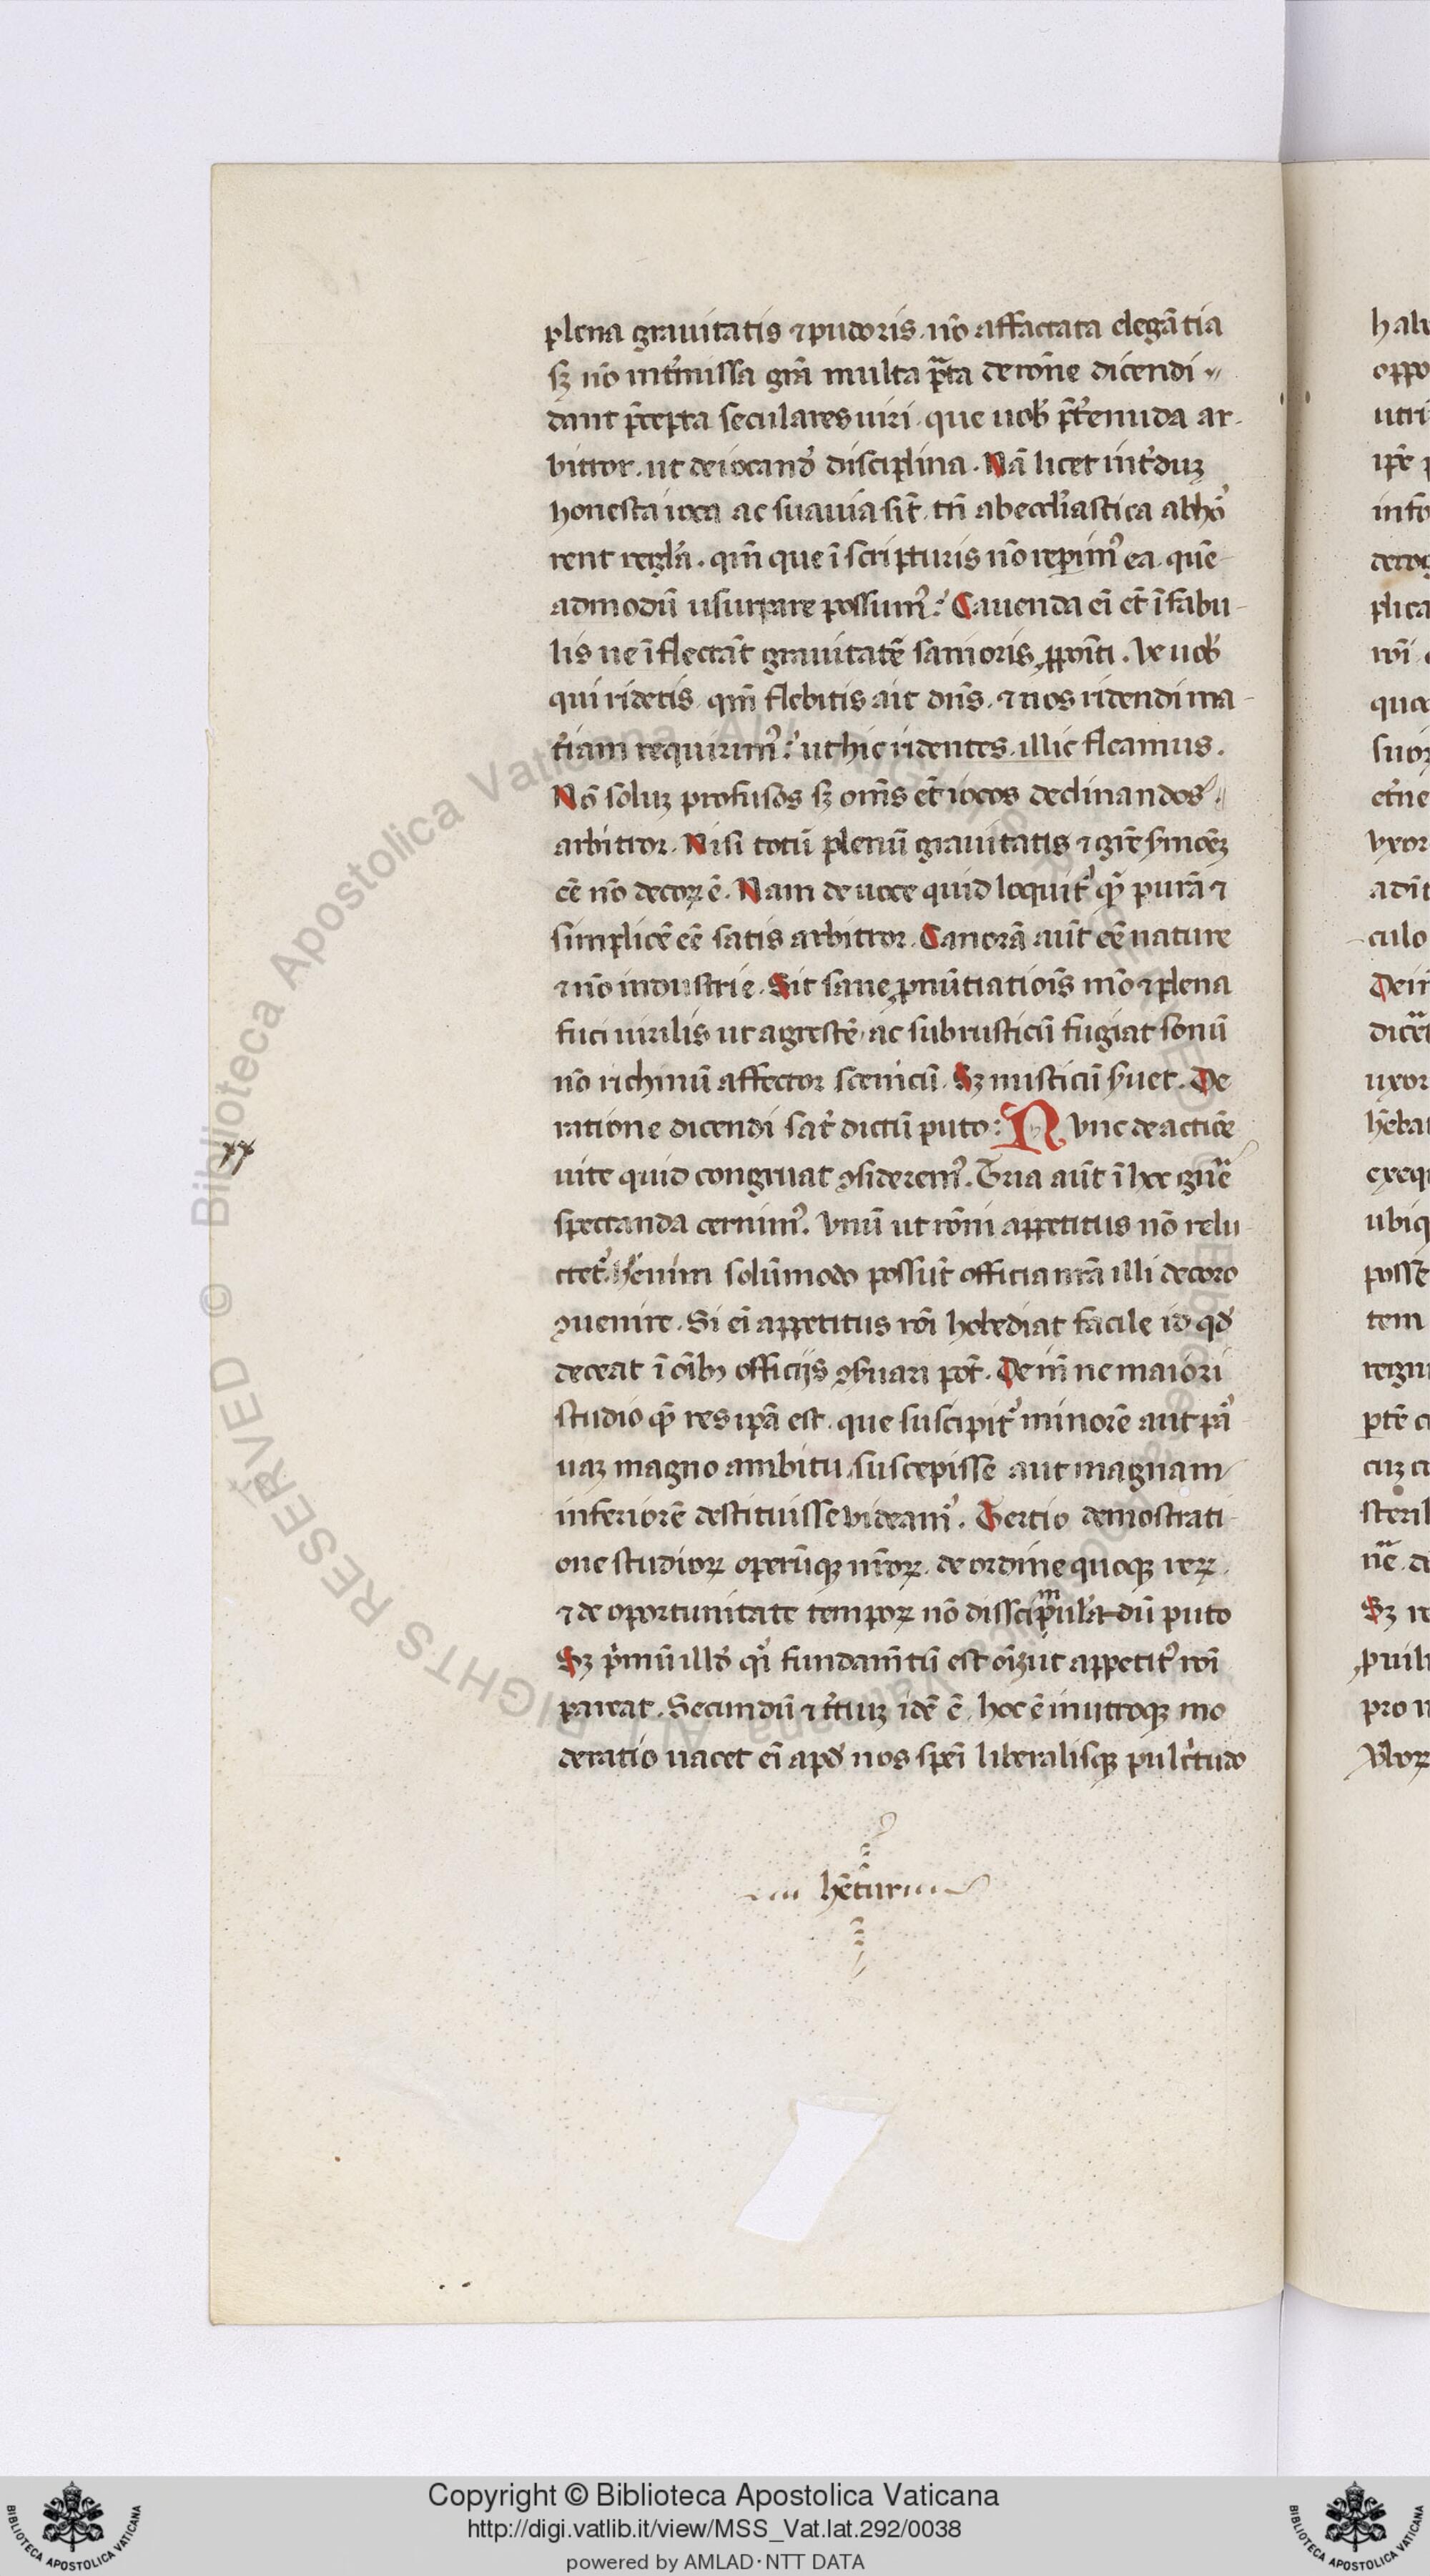 plena grauitatis ⁊ pudoris. nō affactata elegātia
sꝫ nō int̄missa gr̄a multa p̄ta de rōne dicendi
dant p̄cepta seculares uiri. que uob̄ p̄t̄eunda ar-
bitror. ut de iocand̄ disciplina. Nā licet int̄duꝫ
honesta ioca ac suauia sīt. tn̄ ab eccl̄iastica abhō
rent regl̄a. qm̄ que ī scripturis nō rep̄im᷒ ea. quē-
admodū usurpare possum᷒. Cauenda eī et̄ ī fabu-
lis ne īflectāt grauitatē sanioris ꝓpoīti. Ve uob̄
qui ridetis. qm̄ flebitis ait dn̄s. ⁊ nos ridendi ma-
t̄iam requirim᷒. ut hic ridentes. illic fleamus.
Nō soluꝫ profusos sꝫ om̄s et̄ iocos declinandos
arbitror. Nisi totū plenū grauitatis ⁊ gr̄e
eē nō decoꝝ ē. Nam de uoce quid loquit᷒ qꝫ purā ⁊
simplicē eē satis arbitror. Canorā aūt eē nature
⁊ nō industrie. Sit sane ꝓnūtiatiōis mō ⁊ plena
fuci uirilis ut agrestē ac subrusticū fugiat sonū
nō richmū affector scenicū. Sꝫ misticū s̄uet. De
ratione dicendi sat̄ dictū puto: Nvnc de actiōe
uite quid congruat ꝯsiderem᷒. Tria aūt ī hoc gn̄e
spectanda cernim᷒. Vnū ut rōni appetitus nō relu
ctet᷒. H̄ enim solūmodo possūt officia nr̄a illi decoro
ꝯuenire. Si eī appetitus rōi hobediat facile id qd̄
deceat ī oībꝫ officijs ꝯs̄uari pōt. Dein̄ ne maiori
studio qꝫ res ip̄a est. que suscipit᷒ minorē aut pā
uaꝫ magno ambitu suscepisse aut magnam
inferiorē destituisse uideam᷒. Tertio demostrati
one studioꝝ operūqꝫ nr̄oꝝ. de ordine quoqꝫ reꝝ.
⁊ de oportunitate tempoꝝ nō dissimul̄adū puto
Sꝫ p̄mū illd̄ q᷒ fundam̄tū est oīuꝫ ut appetit᷒ rōi
pareat. Secundū ⁊ t̄tiuꝫ idē ē. hoc ē in utroqꝫ mo
deratio uacet eī apd̄ nos spēi liberalisqꝫ pulc̄tudo
hētur
Copyright © Biblioteca Apostolica Vaticana
http://digi.vatlib.it/view/MSS_Vat.lat.292/0038
powered by AMLAD·NTT DATA